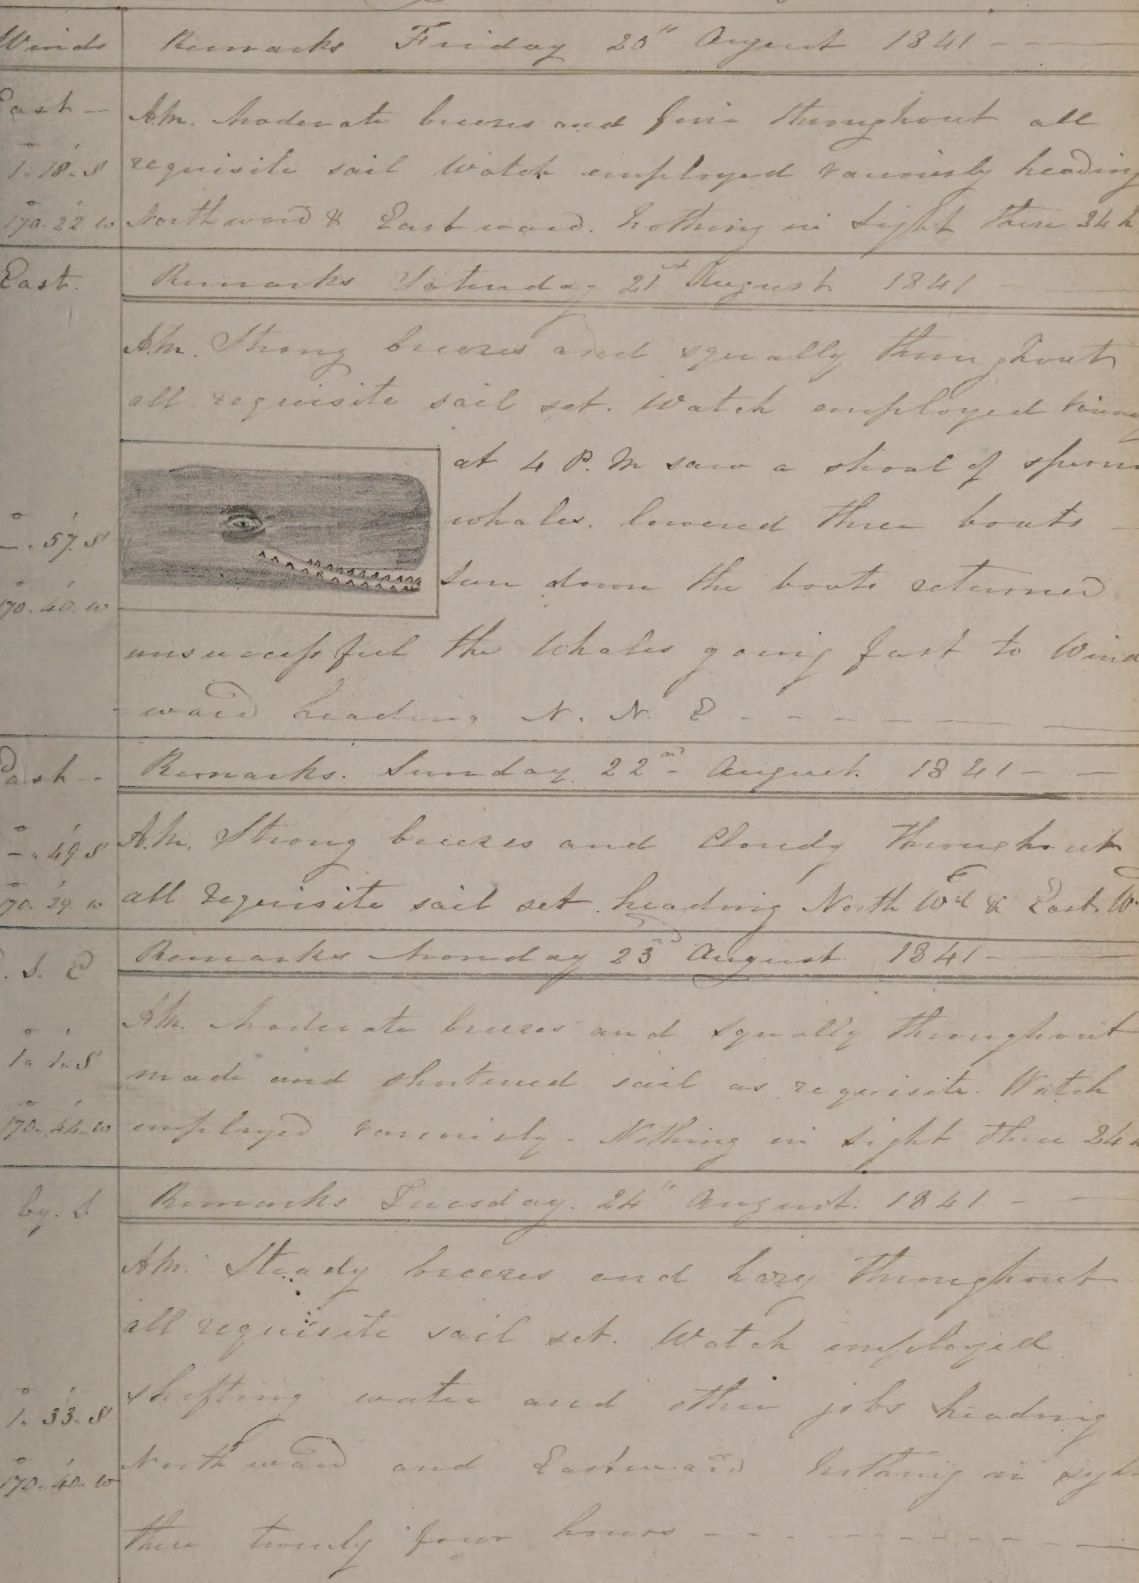 Winds Remarks Friday 20th August 1841
East - A.M. Moderate breezes and fine throughout all
1. 18. S requisite sail Watch employed variously heading
170. 22 W Northward & Eastward. Nothing in Sight these 24 h
East. Remarks Saturday 21st August 1841
A.M. Strong breezes and squally throughout
all requisite sail set. Watch employed
at 4 P.M saw a shoal of sperm
whales. lowered three boats -
-. 57. S
Sun down the boats returned
170. 40. W
unsuccessful the Whales going fast to Wind
ward heading N. N. E
East - Remarks. Sunday 22nd August. 1841
A.M. Strong breezes and Cloudy throughout
-. 49. S
170. 29. W all requisite sail set. heading North Wd & East. W
. S. E Remarks Monday 23rd August 1841
A.M. Moderate breezes and squally throughout
1. 1. S made and shortened sail as requisite. Watch
170. 44. W employed variously - Nothing in Sight these 24 h
by. S Remarks Tuesday. 24th August. 1841
A.M. Steady breezes and hazy throughout
all requisite sail set. Watch employed
1. 33. S shifting water and other jobs heading
170. 40. W Northward and Eastward Nothing in sigh
these twenty four hours